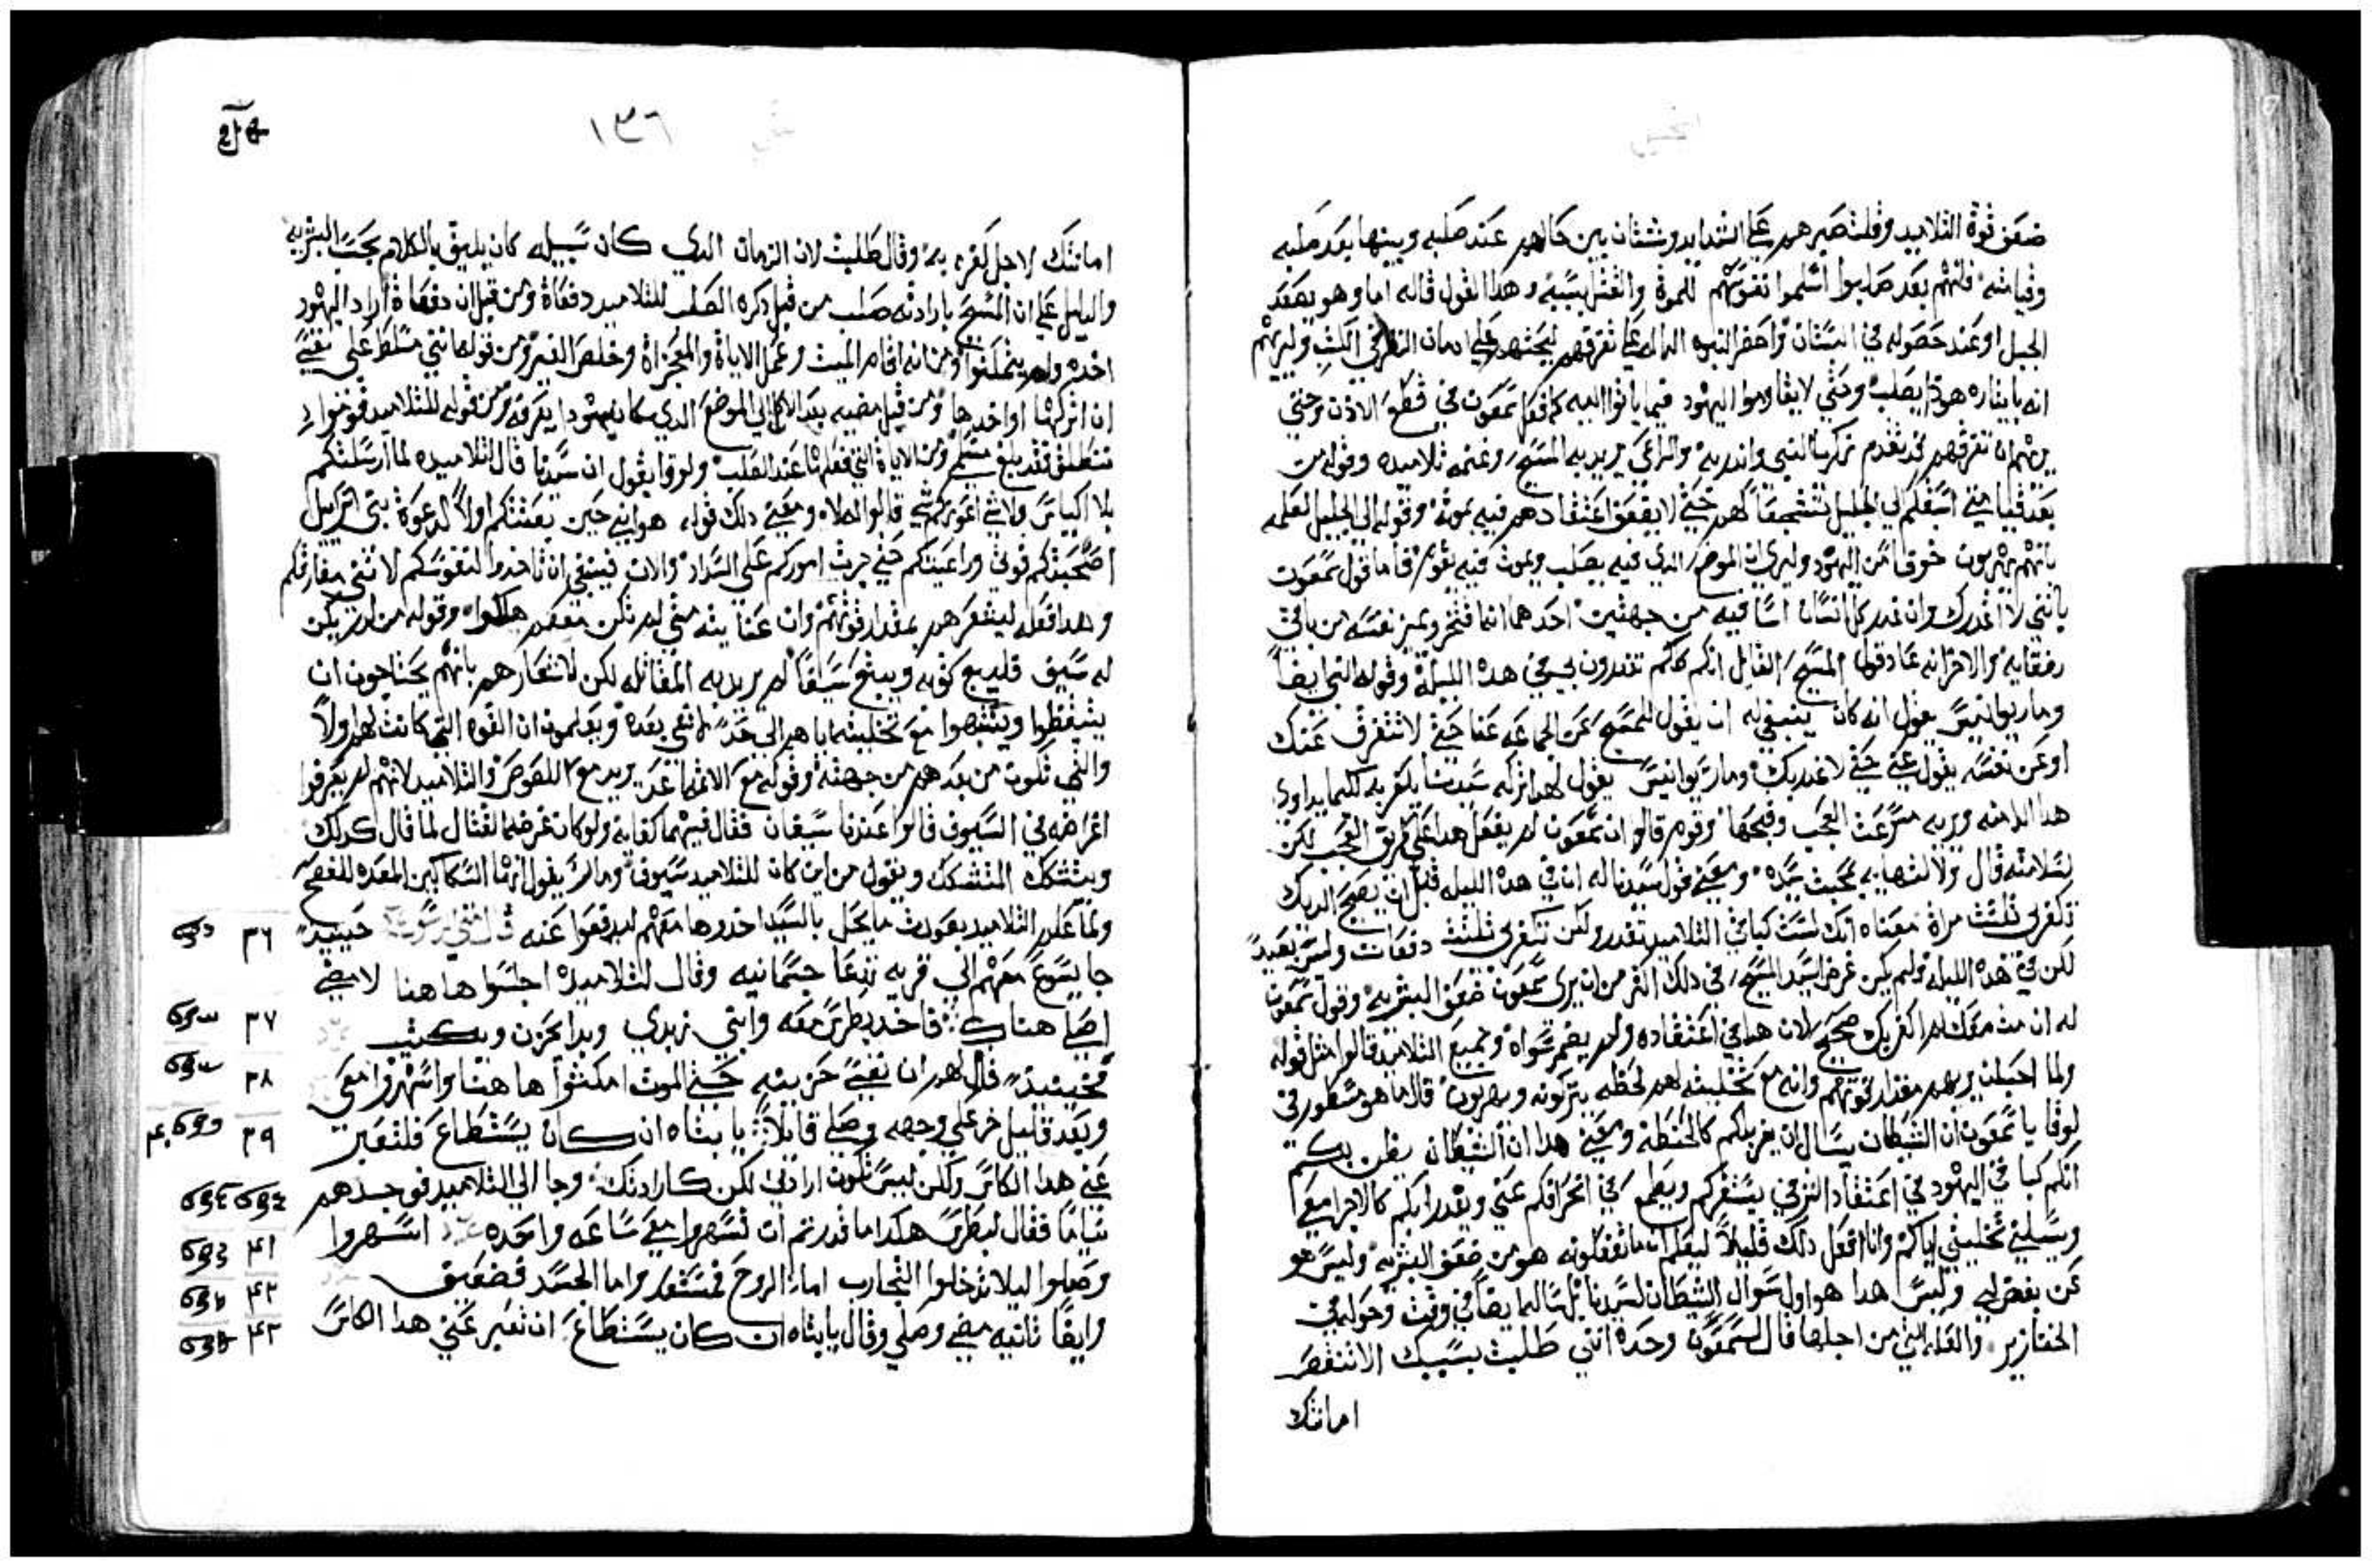 ضعف قوة التلاميد وقلت صبرهم علي الشدايد وشتان بين حالهم عند صلبه وبينها بعد صلبه
وقيامته فانهم بعد صلبوا اسلموا نفوسهم للموة والقتل بسببه وهدا القول قاله اما وهو يصعد
الجبل او عند حصوله في البستان واحضر النبوه الداله علي تفرقهم ليحثهم علي ادمان النظر في الكتب وليريهم
انه بايتاره هودا يصلب وحتي لا يقاوموا اليهود فيما ياتوا اليه كما فعل سمعون في قطع الادن وحتي
يريهم ان تفرقهم قد تقدم زكريا النبي واندر به والراعي يريد به المسيح وغنمه تلاميده وقوله من
بعد قيامتي اسبقكم الي الجليل تشجيعاً لهم حتي لا يضعف اعتقادهم فيه بموته وقوله الي الجليل لعلمه
بانهم يهربون خوفا من اليهود وليري ان الموضع الدي فيه يصلب ويموت فيه يقوم فاما قول سمعون
بانني لا اغدرك وان غدر كل انسان اسا فيه من جهتين احدهما انما فتخر وميز نفسه من باقي
رفقايه والاخر انه عاد قول المسيح القايل انكم كلكم تغدرون بي في هده الليلة وقوله التي ايضاً
ومار يوانيس يقول انه كان ينبغي له ان يقول للمسيح عن الجماعه عنا حتي لا نتفرق عنك
او عن نفسه يقول عني حتي لا غدر بك ومار يوانيس يقول لهدا تركه سيدنا يكفر به لكيما يداوي
هدا الدا منه ويريه سرعت العجب وقبحها وقوم قالوا ان سمعون لم يفعل هدا علي طريق العجب لكن
لسلامته قال ولالتهابه بمحبت سيده ومعني قول سيدنا له ان في هده الليله قبل ان يصيح الديك
تكفر بي تلتت مراة معناه انك لست كباقي التلاميد تغدر ولكن تكفر بي تلتت دفعات وليس بعيد
لكن في هده الليله ولم يكن غرض السيد المسيح في دلك اكتر من ان يري سمعون ضعف البشريه وقول سمعون
له ان مت معك لم اكفر بك صحيح لان هدا في اعتقاده ولم يضمر سواه وجميع التلاميد قالوا متل قوله
ولما احب ان يريهم مقدار قوتهم وانه مع تخليته لهم لحظه يتركونه ويهربون قال ما هو مسطور في
لوقا يا سمعون ان الشيطان يسال ان يغربلكم كالحنطه ومعني هدا ان الشيطان يظن بكم
انكم كباقي اليهود في اعتقاد النز في يستغركم ويطمع في انحرافكم عني ويقدر انكم كالاجرا معي
ويسلني تخليتي اياكم وانا افعل دلك قليلاً ليعلم ان ما تفعلونه هو من ضعف البشريه وليس هو
عن بغض لي وليس هدا هو اول سوال الشيطان لسيدنا بل سالهما ايضاً في وقت دخوله في
الخنازير والعله التي من اجلها قال لسمعون وحده انني طلبت بسببك الا تنقص
امانتك
١٣٦
امانتك لاجل كفره به وقال طلبت لان الزمان الدي كان سبيله كان يليق بالكلام بحسب البشريه
والدليل علي ان المسيح بارادته صلب من قبل دكره الصلب للتلاميد دفعاة ومن قبل ان دفعاة اراد اليهود
اخده ولم يتمكنوا ومن انه اقام الميت وعمل الاياة والمعجزاة وخلص الغير ومن قوله انني مسلط علي نفسي
ان اتركها او اخدها ومن قبل مضيه بعد الاكل الي الموضع الدي كان يهودا يعرفه ومن قوله للتلاميد قوموا
ننطلق فقد بلغ مسلمي ومن الاياة التي فعلها عند الصلب ولوقا يقول ان سيدنا قال لتلاميده لما ارسلتكم
بلا اكياس ولا شي اعوزكم شي قالوا له لا ومعني دلك قوله هو انني حين بعتتكم اولاً لدعوة بني اسراييل
اصحبتكم قوتي وراعيتكم حتي جرت اموركم علي السداد والان فينبغي ان تاخدوا لنفوسكم لانني مفارقكم
وهدا فعله ليشعرهم بمقدار قوتهم وان عنايته متي لم تكن معهم هلكوا وقوله من لم يكن
له سيف فليبيع توبه ويبتع سيفاً لم يريد به المقاتله لكن لاشعارهم بانهم يحتاجون ان
يتيقظوا ويتنبهوا مع تخليته اياهم الي حد لما تتي بعده ويعلمون ان القوه التي كانت لهم اولاً
والتي تكون من بعدهم من جهته وقوله مع الاتمه اعد يريد مع اللصوص والتلاميد لانهم لم يعرفوا
اغراضه في السيوف قالوا عندنا سيفان فقال فيهما كفايه ولو كان غرضه القتال لما قال كدلك
ويتشكك المتشكك ويقول من اين كان للتلاميد سيوف ومار يقول انها السكاكين المعده للفصح
ولما علم التلاميد بقرب ما يحل بالسيد اخدوها معهم ليدفعوا عنه قال متي الرسول حينيد
٣٦
جا يسوع معهم الي قريه تدعا جسمانيه وقال لتلاميده اجلسوا هاهنا لامضي
اصلي هناك فاخد بطرس معه وابني زبدي وبدا يحزن ويكتيب
٣٧
فحينيد قال لهم ان نفسي حزينه حتي الموت امكتوا هاهنا واسهروا معي
٣٨
وبعد قليل خر علي وجهه وصلي قايلاً يا ابتاه ان كان يستطاع فلتعبر
٣٩
عني هدا الكاس ولكن ليس تكون ارادتي لكن كارادتك وجا الي التلاميد فوجدهم
نياما فقال لبطرس هكدا ما قدرتم ان تسهروا معي ساعه واحده اسهروا
٤١
وصلوا ليلا تدخلوا التجارب اما الروح فمستعد واما الجسد فضعيف
٤٢
وايضًا تانيه مضي وصلي وقال يا ابتاه ان كان يستطاع ان تعبر عني هدا الكاس
٤٢